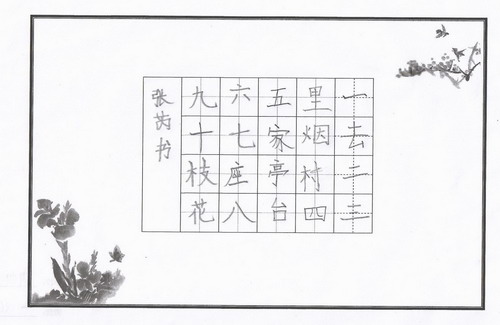 一去二三
里烟村四
五家亭台
六七座八
九十枝花
张芮书